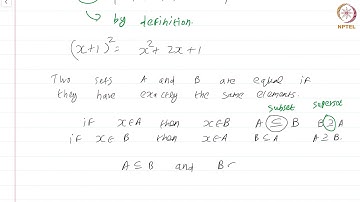 by definition.
(x+1)² = x² + 2x + 1
Two sets A and B are equal if
they have exactly the same elements.
subset superset
if x∈A then x∈B A ⊆ B B ⊇ A
if x∈B then x∈A B ⊆ A A ⊇ B
A ⊆ B and B ⊂
NPTEL